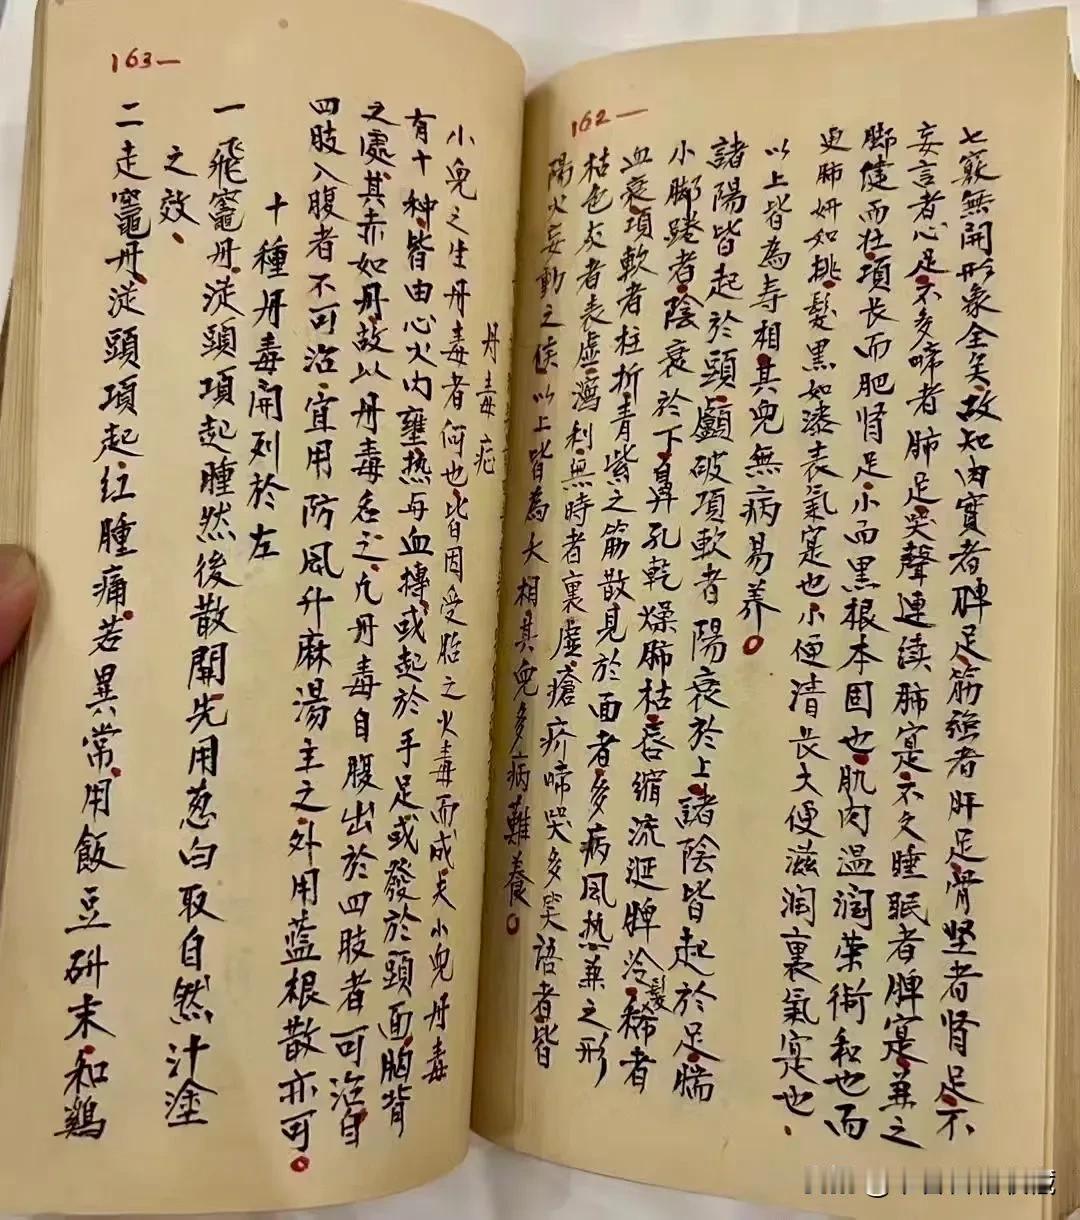 162—
七竅無開形象全矣。故知內實者脾足。筋強者肝足。骨坚者肾足。不
妄言者心足。不多啼者肺足。哭聲連续肺寔。不久睡眠者脾寔。兼之
脚健而壮。項长而肥肾足。小而黑根本固也。肌肉温润荣衛和也。而
更肺妍如挑。髮黑如漆表氣寔也。小便清長大便滋润裏氣寔也、
以上皆為寿相。其兒無病易养。
諸陽皆起於頭。顱破項軟者陽衰於上。諸陰皆起於足。腨
小脚踡者。陰衰於下。鼻孔乾燥肺枯。唇缩流涎脾冷。髮稀者
血衰。項軟者柱折。青紫之筋散見於面者。多病風热兼之形
枯色灰者表虚。瀉利無時者裏虚。瘡疥啼哭多笑语者。皆
陽火妄動之候。以上皆為大相。其兒多病難養。
163—
丹毒症
小兒之生丹毒者何也。皆因受胎之火毒而成。夫小兒丹毒
有十种。皆由心火内壅热与血搏。或起於手足或發於頭面胸背
之處。其赤如丹。故以丹毒名之。凢丹毒自腹出於四肢者可治。自
四肢入腹者不可治。宜用防風升麻湯主之。外用蓝根散亦可。
十種丹毒開列於左
一飛竈丹。從頭項起腫然後散開。先用葱白取自然汁塗
之效、
二走竈丹。從頭項起红腫痛。若異常。用飯豆研末。和鷄